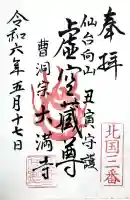 奉拝
丑寅守護
仙台向山
虚空蔵尊
曹洞宗 大満寺
令和六年五月十七日
北国三番